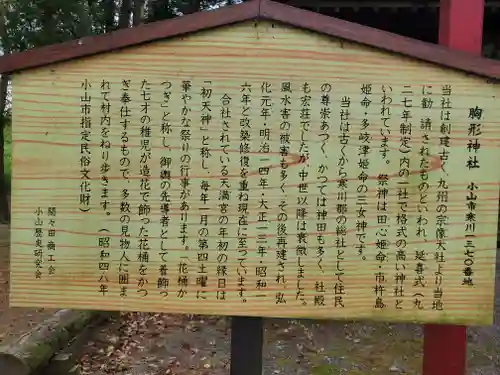 胸形神社
小山市寒川一三七〇番地
当社は創建古く、九州の宗像大社より当地
に勧請されたものといわれ、延喜式（九
二七年制定）内の一社で格式の高い神社と
いわれています。祭神は田心姫命・市杵島
姫命・多岐津姫命の三女神です。
当社は古くから寒川郡の総社として住民
の尊崇あつく、かつては神田も多く、社殿
も宏荘でしたが、中世以降は衰微しました。
風水害の被害も多く、その後再建され、弘
化元年・明治一四年・大正一三年・昭和一
六年と改築修復を重ね現在に至っています。
合社されている天満宮の年初の縁日は
「初天神」と称し、毎年一月の第四土曜に
華やかな祭りの行事があります。「花桶か
つぎ」と称し、御輿の先導者として着飾っ
た七才の稚児が造花で飾った花桶をかつ
ぎ奉仕するもので、多数の見物人に囲ま
れて村内をねり歩きます。（昭和四八年
小山市指定民俗文化財）
間々田商工会
小山歴史研究会